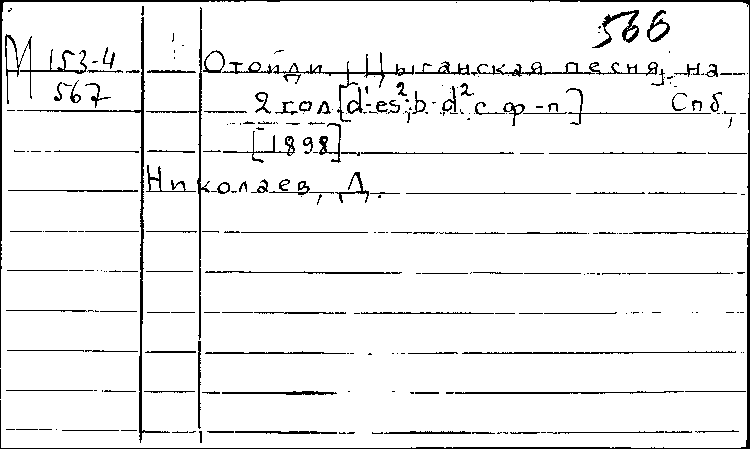 566
М 153-4 Отойди. [Цыганская песня]. На
567 2 гол. [d¹-es²; b-d² с ф-п] Спб,
[1898].
Николаев, Д.